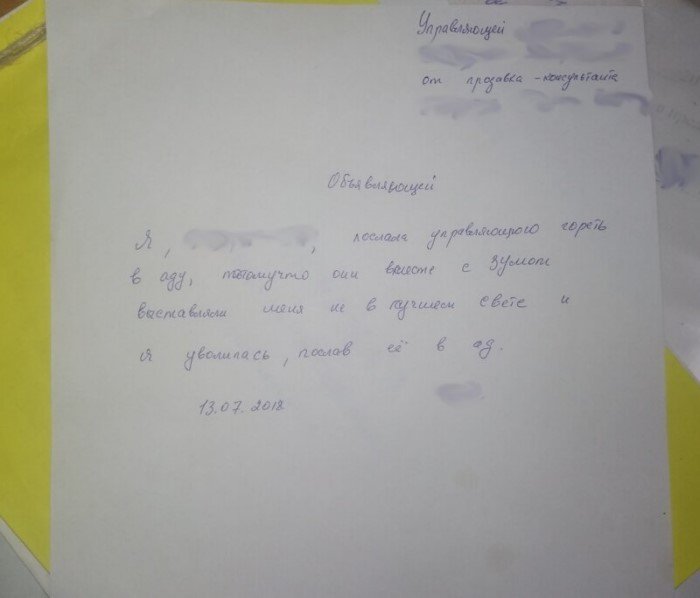 Управляющей
от продавка-консультанта
Объявляющей
Я, , послала управляющую гореть
в аду, потомучто они вместе с
выставляли меня не в лучшем свете и
я уволилась, послав её в ад.
13.07.2018